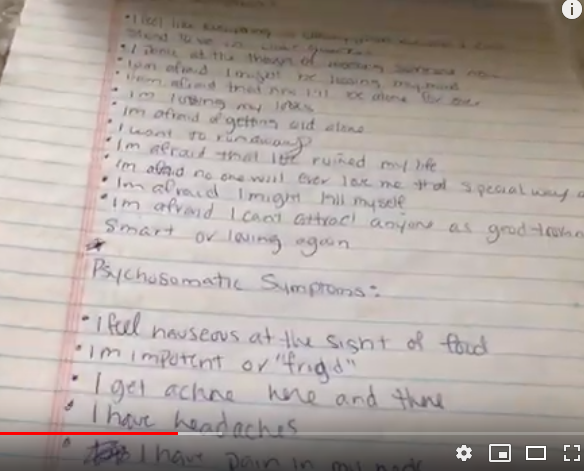 • I feel like everything is
• I panic at the thought of meeting someone new
• I am afraid I might be losing my mind
• I am afraid that now I'll be alone for ever
• Im losing my looks
• Im afraid of getting old alone
• I want to runaway
• Im afraid that I've ruined my life
• Im afraid no one will ever love me that special way
• Im afraid I might kill myself
• Im afraid I cant attract anyone as good
smart or loving again
Psychosomatic Symptoms:
• I feel nauseous at the sight of food
• Im impotent or "frigid"
• I get achne here and there
• I have headaches
• I have pain in my